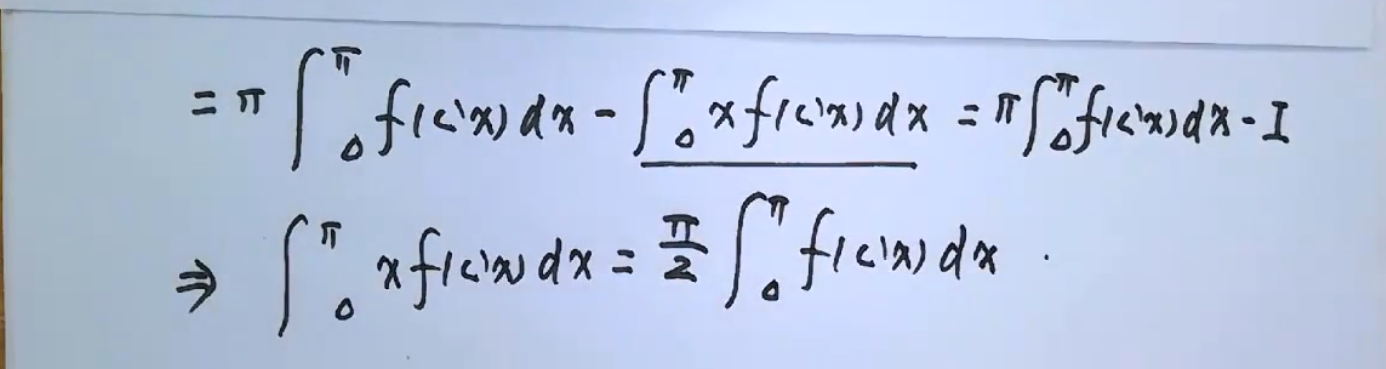 = π ∫₀^π f(sin x) dx - ∫₀^π x f(sin x) dx = π ∫₀^π f(sin x) dx - I
⇒ ∫₀^π x f(sin x) dx = π/2 ∫₀^π f(sin x) dx .